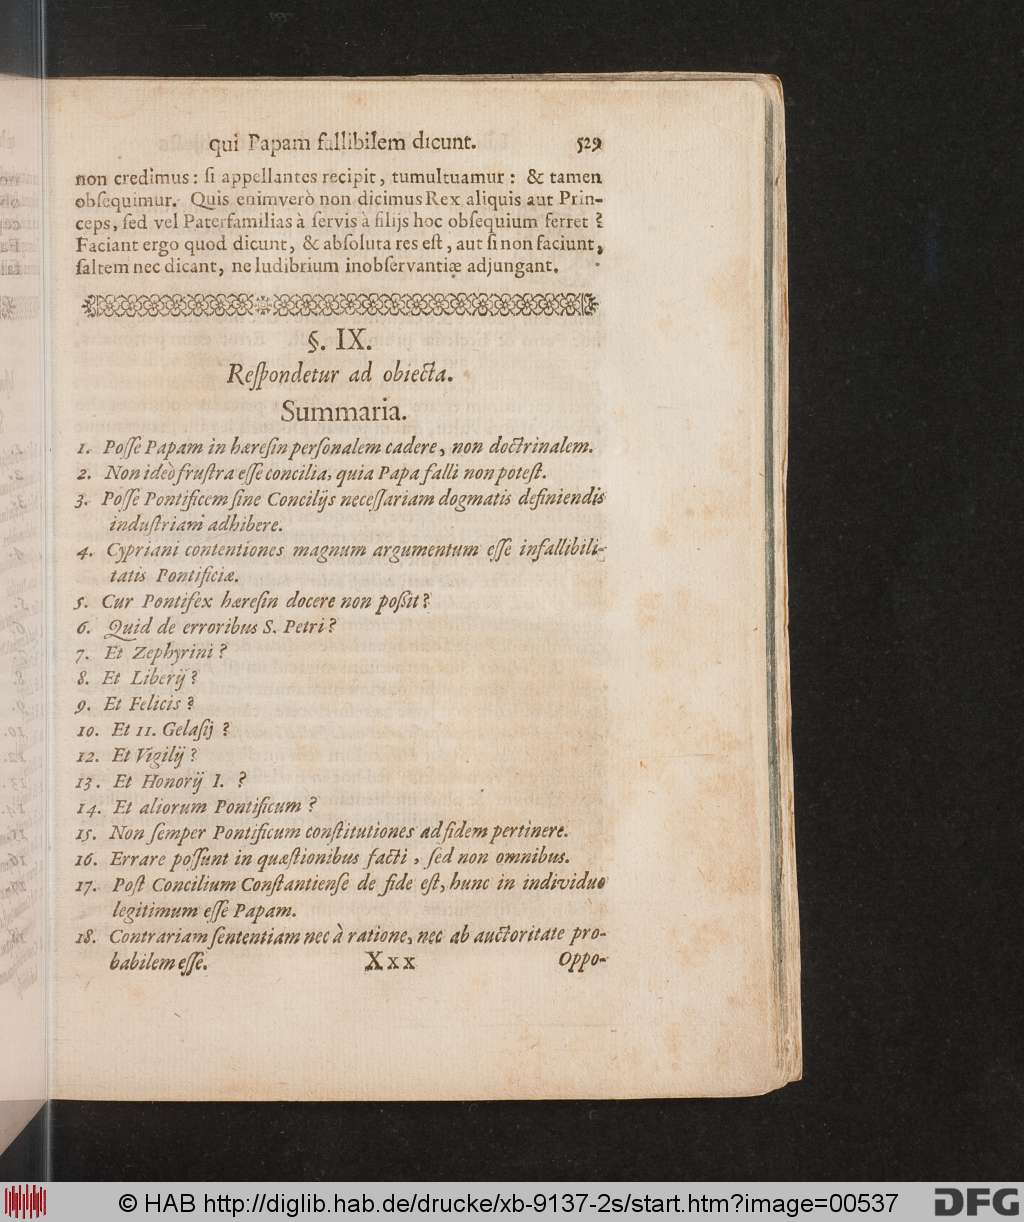 qui Papam fallibilem dicunt. 529
non credimus: ſi appellantes recipit, tumultuamur: & tamen
obſequimur. Quis enimverò non dicimus Rex aliquis aut Prin-
ceps, ſed vel Paterfamilias à ſervis à filijs hoc obſequium ferret?
Faciant ergo quod dicunt, & abſoluta res eſt, aut ſi non faciunt,
ſaltem nec dicant, ne ludibrium inobſervantiæ adjungant.
§. IX.
Reſpondetur ad obiecta.
Summaria.
1. Poſſe Papam in hæreſin perſonalem cadere, non doctrinalem.
2. Non ideò fruſtra eſſe concilia, quia Papa falli non poteſt.
3. Poſſe Pontificem ſine Concilijs neceſſariam dogmatis definiendis
induſtriam adhibere.
4. Cypriani contentiones magnum argumentum eſſe infallibili-
tatis Pontificiæ.
5. Cur Pontifex hæreſin docere non poſſit?
6. Quid de erroribus S. Petri?
7. Et Zephyrini?
8. Et Liberij?
9. Et Felicis?
10. Et 11. Gelaſij?
12. Et Vigilij?
13. Et Honorij I.?
14. Et aliorum Pontificum?
15. Non ſemper Pontificum conſtitutiones ad fidem pertinere.
16. Errare poſſunt in quæſtionibus facti, ſed non omnibus.
17. Poſt Concilium Conſtantienſe de fide eſt, hunc in individuo
legitimum eſſe Papam.
18. Contrariam ſententiam nec à ratione, nec ab auctoritate pro-
babilem eſſe. Xxx Oppo-
© HAB http://diglib.hab.de/drucke/xb-9137-2s/start.htm?image=00537 DFG